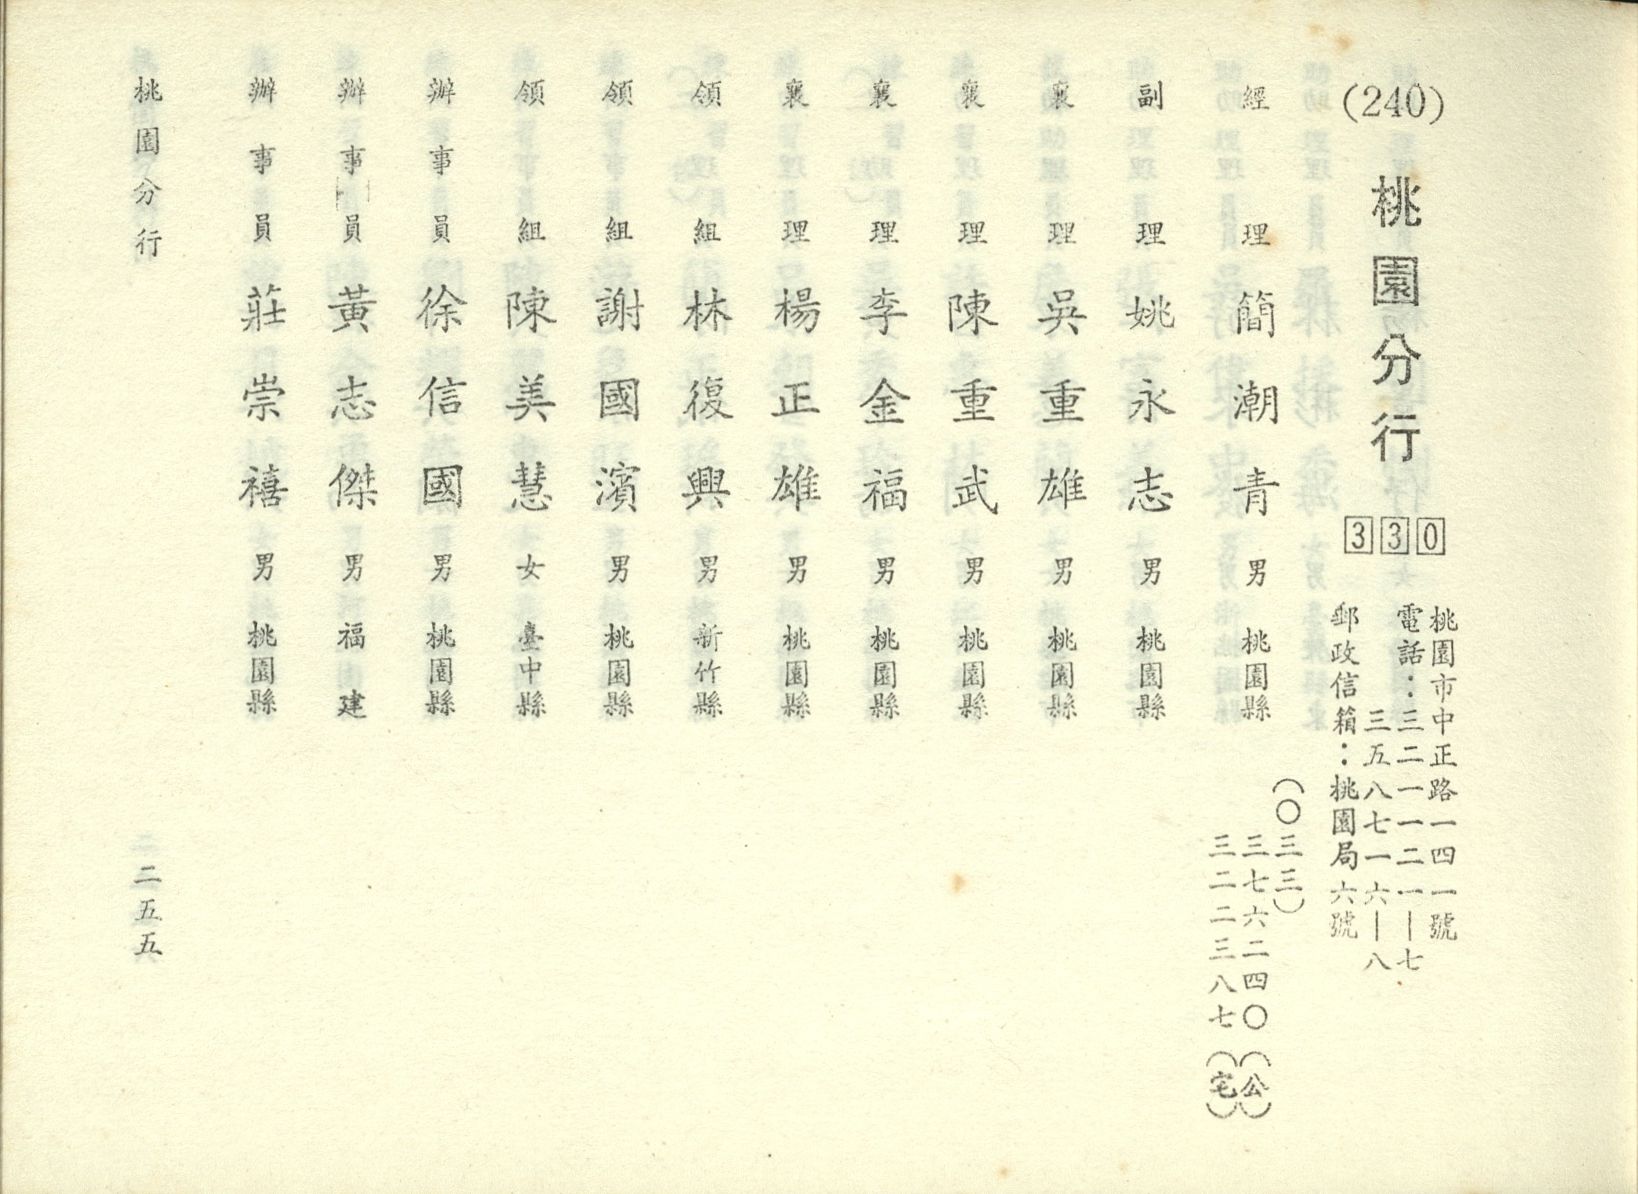 (240)
桃園分行
330
桃園市中正路一四一號
電話：三二一一二一｜七
三五八七一六｜八
郵政信箱：桃園局六號
經理 簡潮青 男 桃園縣
（〇三三）
三七六二四〇（公）
三二二三八七（宅）
副理 姚永志 男 桃園縣
襄理 吳重雄 男 桃園縣
襄理 陳重武 男 桃園縣
襄理 李金福 男 桃園縣
襄理 楊正雄 男 桃園縣
領組 林復興 男 新竹縣
領組 謝國濱 男 桃園縣
領組 陳美慧 女 臺中縣
辦事員 徐信國 男 桃園縣
辦事員 黃志傑 男 福建
辦事員 莊崇禧 男 桃園縣
桃園分行
二五五